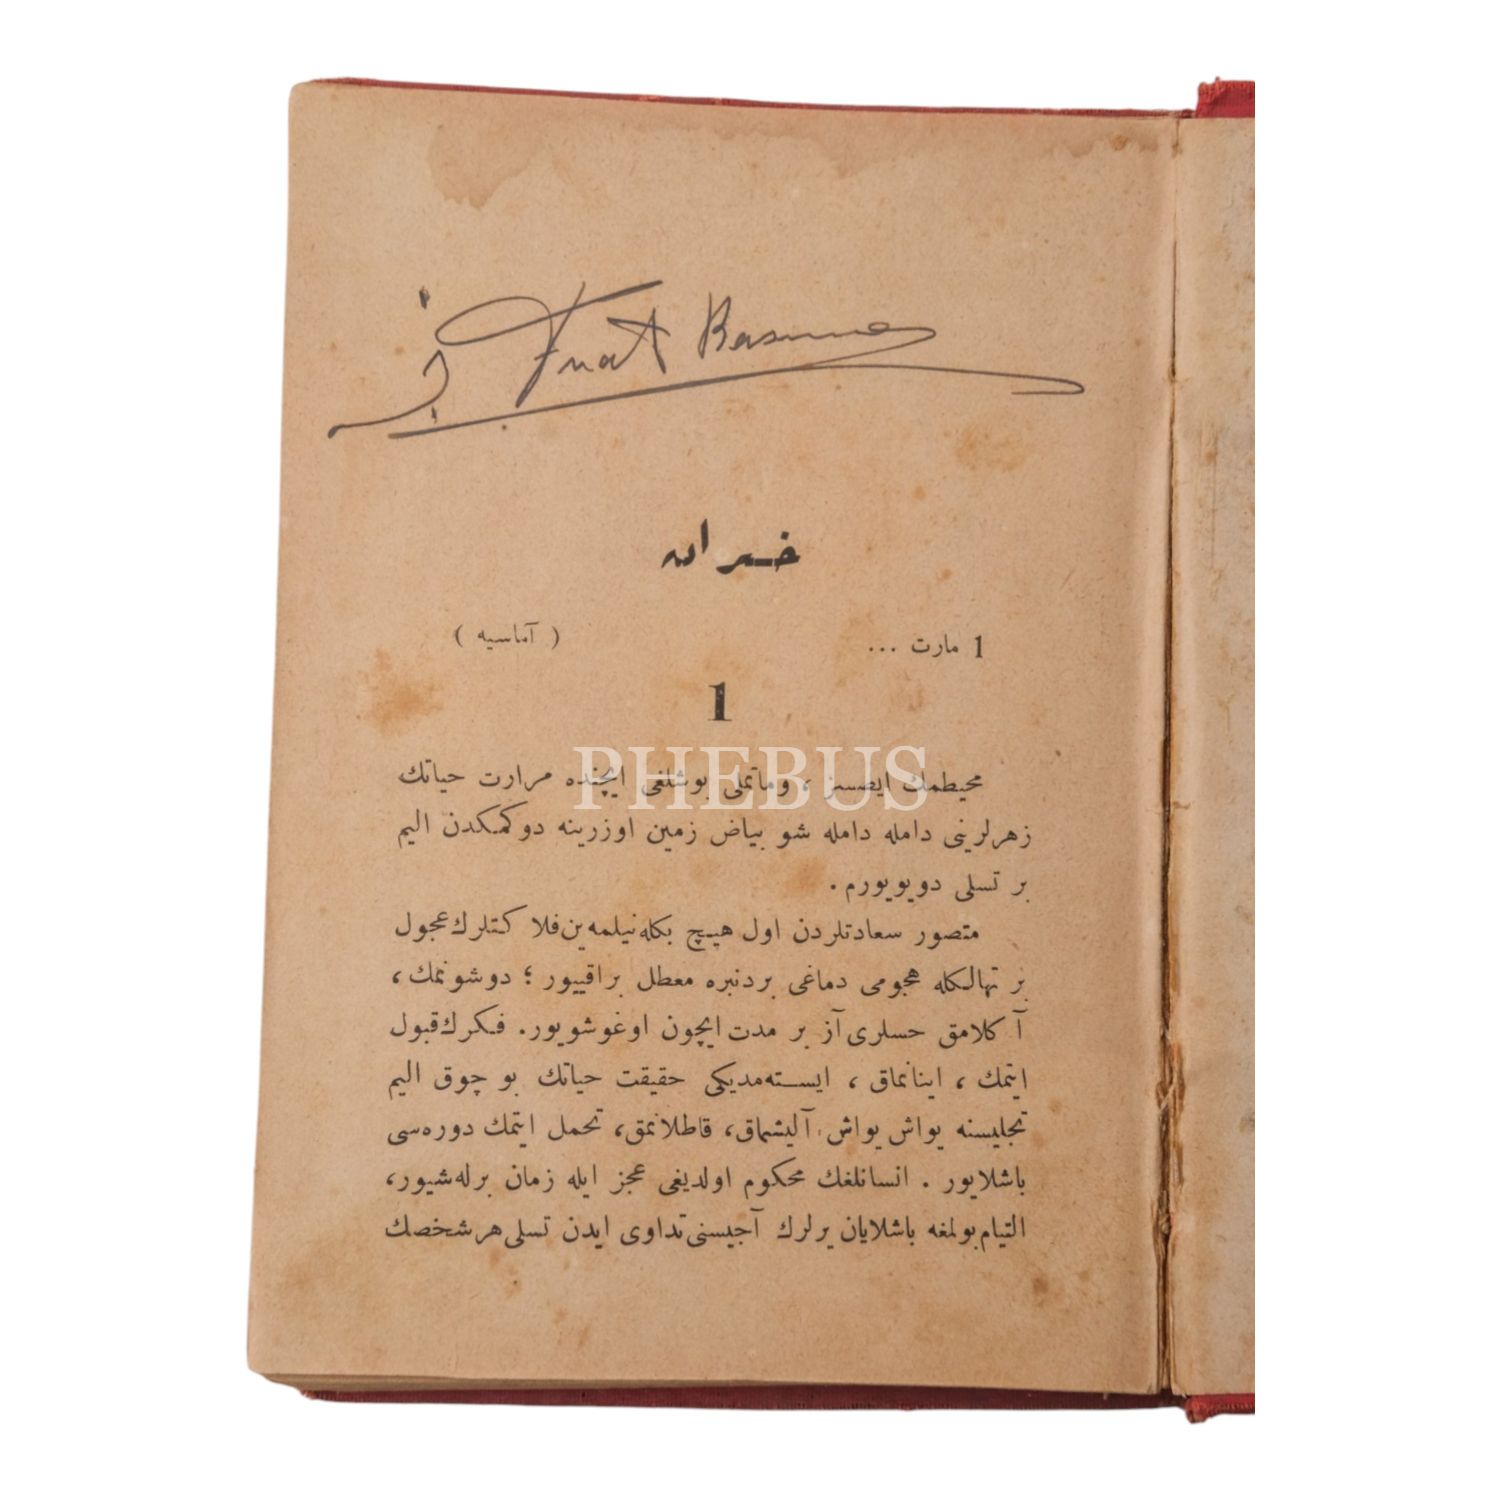 Fuat Basma
خسران
1 مارت ... ( آماسیه )
1
PHEBUS
محیطمك ایصسز ، وماتملی بوشلغی ایچنده مرارت حیاتك
زهرلرینی دامله دامله شو بیاض زمین اوزرینه دوکمکدن الیم
بر تسلی دویویورم .
متصور سعادتلردن اول هیچ بکله‌نیلمه‌ین فلا کتلرك عجول
بر تهالکله هجومی دماغی بردنبره معطل براقییور ؛ دوشونمك ،
آ کلامق حسلری آز بر مدت ایچون اوغوشویور. فکرك قبول
ایتمك ، اینانماق ، ایسته‌مدیکی حقیقت حیاتك بو چوق الیم
تجلیسنه یواش یواش آلیشماق، قاطلانمق، تحمل ایتمك دوره‌سی
باشلایور . انسانلغك محکوم اولدیغی عجز ایله زمان برله‌شیور،
التیام‌بولمغه باشلایان یرلرك آجیسنی تداوی ایدن تسلی هر شخصك